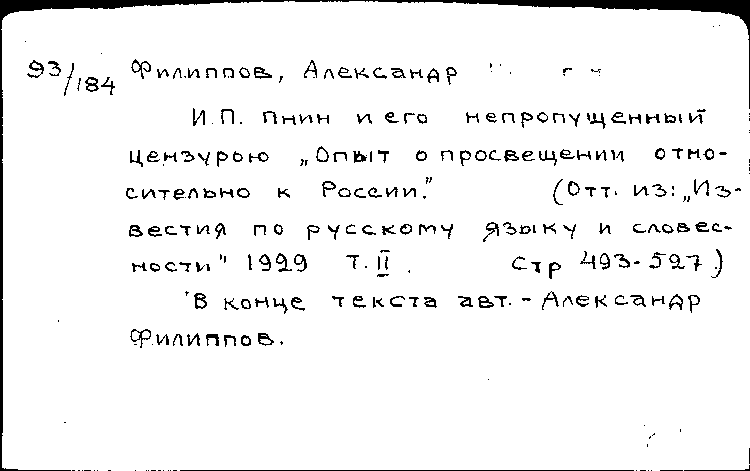 93/184 Филиппов, Александр
И.П. Пнин и его непропущенный
цензурою „Опыт о просвещении отно-
сительно к России." (Отт. из: „Из-
вестия по русскому языку и словес-
ности" 1929 Т. II. Стр 493-527)
В конце текста авт. - Александр
Филиппов.